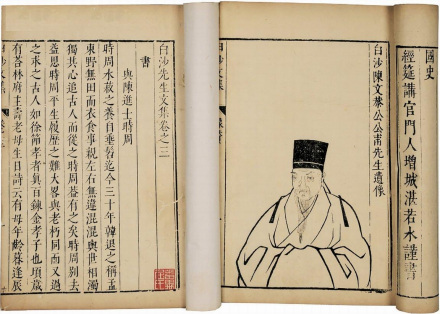 國史
經筵講官門人增城湛若水謹書
白沙陳文恭公公甫先生遺像
白沙文集
白沙先生文集卷之三
書
與陳進士時周
時周水菽之養自垂髫迄今三十年韓退之稱孟
東野無田而衣食事親左右無違混混與世相濁
獨其心追古人而從之時周蓋有之矣時周別去
益思時周平生履歷之難大畧與老朽同而又過
之求之古人如徐節孝者眞百鍊金孝子也頃歲
有荅林府主壽老母生日詩云有母年齡暮逢辰
白沙文集